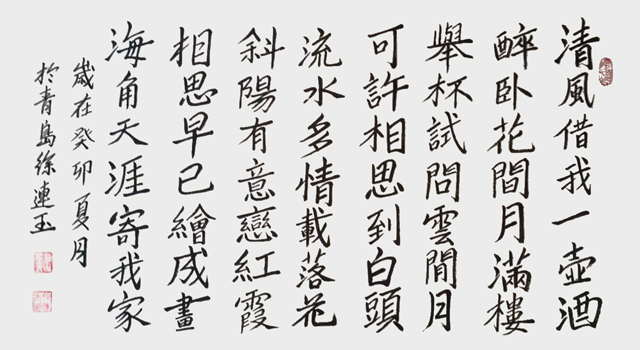 清風借我一壺酒
醉卧花間月滿樓
舉杯試問雲間月
可許相思到白頭
流水多情載落花
斜陽有意戀紅霞
相思早已繪成畫
海角天涯寄我家
歲在癸卯夏月
於青島徐連玉